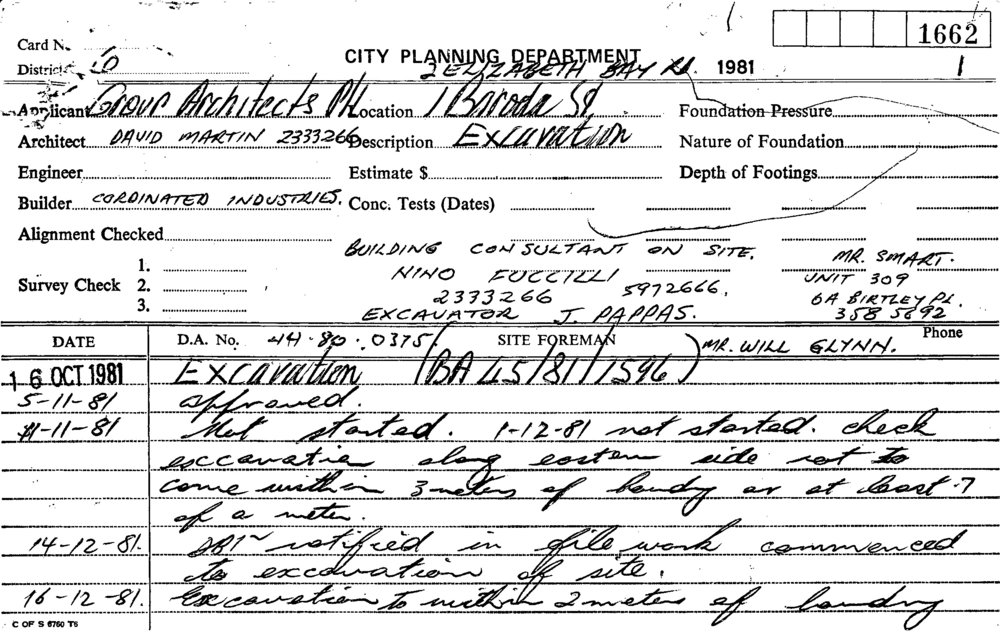 1662
Card No.
CITY PLANNING DEPARTMENT 1981 1
District 10 2 ELIZABETH BAY Rd.
Applicant Group Architects P/L Location 1 Baroda St. Foundation Pressure
Architect DAVID MARTIN 2333266 Description Excavation Nature of Foundation
Engineer Estimate $ Depth of Footings
Builder CORDINATED INDUSTRIES. Conc. Tests (Dates)
Alignment Checked
BUILDING CONSULTANT ON SITE. MR. SMART.
1. NINO FUCCILLI UNIT 309
Survey Check 2. 2333266 5972666. 6A BIRTLEY PL.
3. EXCAVATOR J. PAPPAS. 358 5692
DATE D.A. No. 44.80.0375 SITE FOREMAN MR. WILL GLYNN. Phone
16 OCT 1981 Excavation (BA 45/81/1596)
5-11-81 approved.
11-11-81 Not started. 1-12-81 not started. check
excavation along eastern side not to
come within 3 meters of boundry or at least .7
of a meter.
14-12-81. notified in file work commenced
to excavation of site.
16-12-81. Excavation to within 2 meters of boundry
C OF S 6760 T6